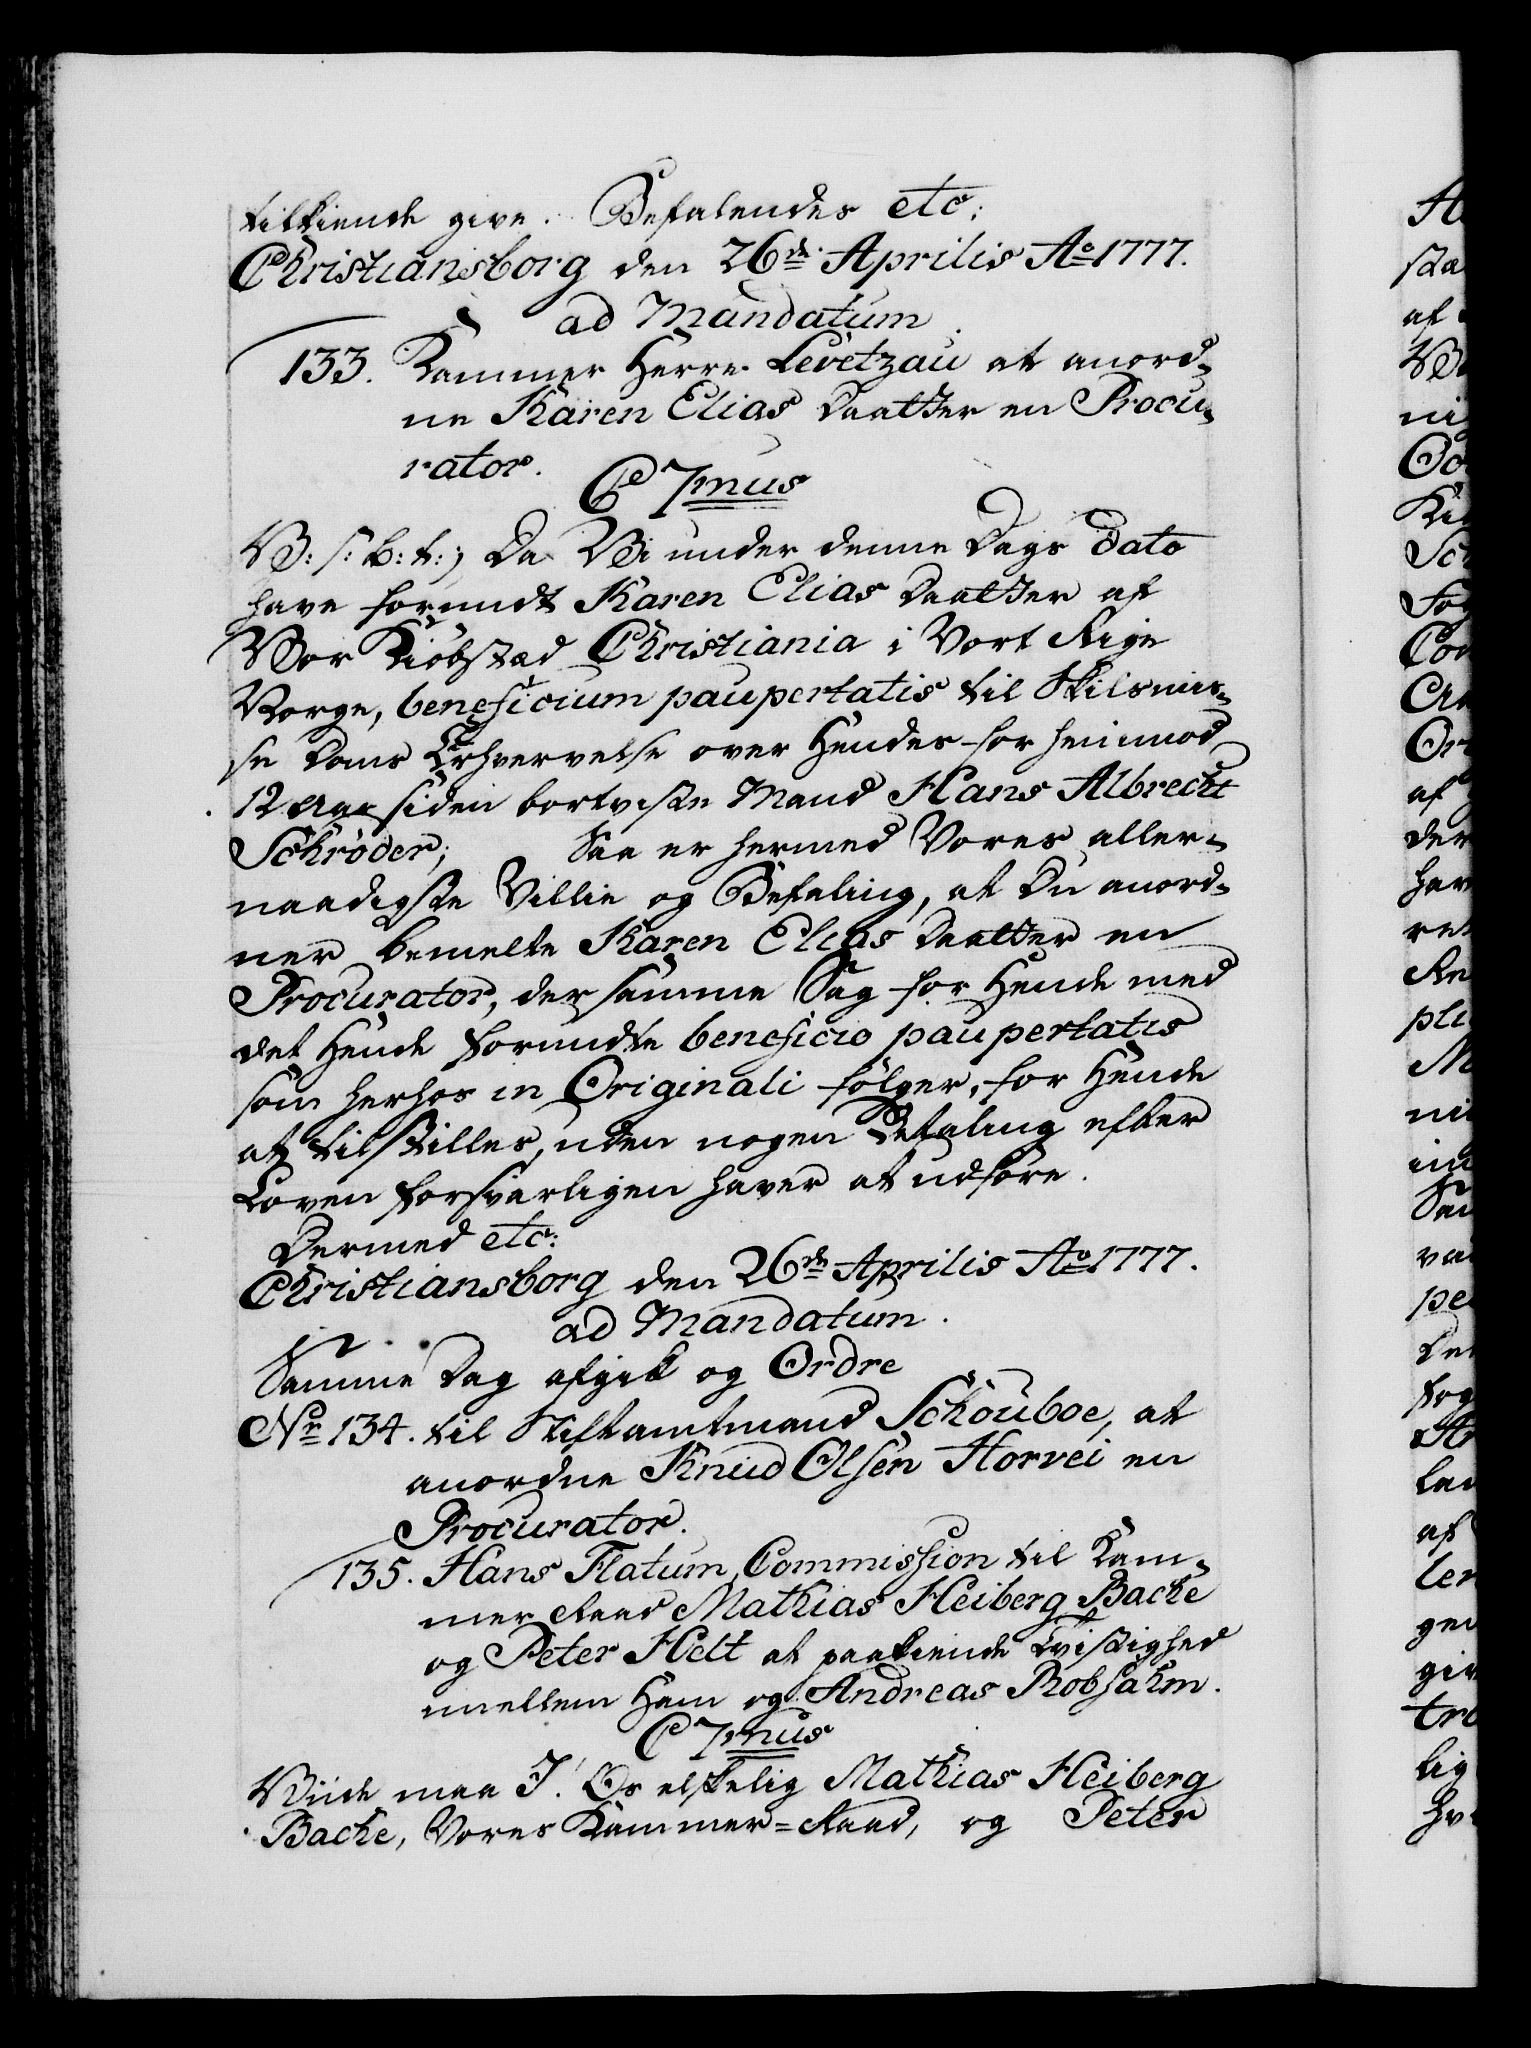 tilkiende give. Befalendes etc:
Christiansborg den 26de Aprilis Ao 1777.
ad Mandatum.
133. Kammer Herre Levetzau at anord-
ne Karen Elias Daatter en Procu-
rator.
C 7mus
V: S: B: t:; Da Vi under denne Dags Dato
have forundt Karen Elias Daatter af
Vor Kiöbstæd Christiania i Vort Rige
Norge, beneficium paupertatis til Skilsmis-
se Doms Erhvervelse over Hendes for henimod
12 Aar siden bortviste Mand Hans Albrecht
Schrøder; Saa er hermed Vores aller-
naadigste Villie og Befaling, at Du anord-
ner bemelte Karen Elias Daatter en
Procurator, der samme Sag for Hende med
det Hende forundte beneficio paupertatis
som herhos in Originali følger, for Hende
at tilstilles, uden nogen Betaling efter
Loven forsvarligen haver at udføre.
Dermed etc:
Christiansborg den 26de Aprilis Ao 1777.
ad Mandatum.
Samme Dag afgik og Ordre
No 134. til Stiftamtmand Schouboe, at
anordne Knud Olsen Horvei en
Procurator.
135. Hans Flatum, Commission til Kam-
mer Raad Mathias Heiberg Bache
og Peter Helt at paakiende Tvistighed
imellem Ham og Andreas Robsahm.
C 7mus
Viide maa I! Os elskelig Mathias Heiberg
Bache, Vores Kammer-Raad, og Peter